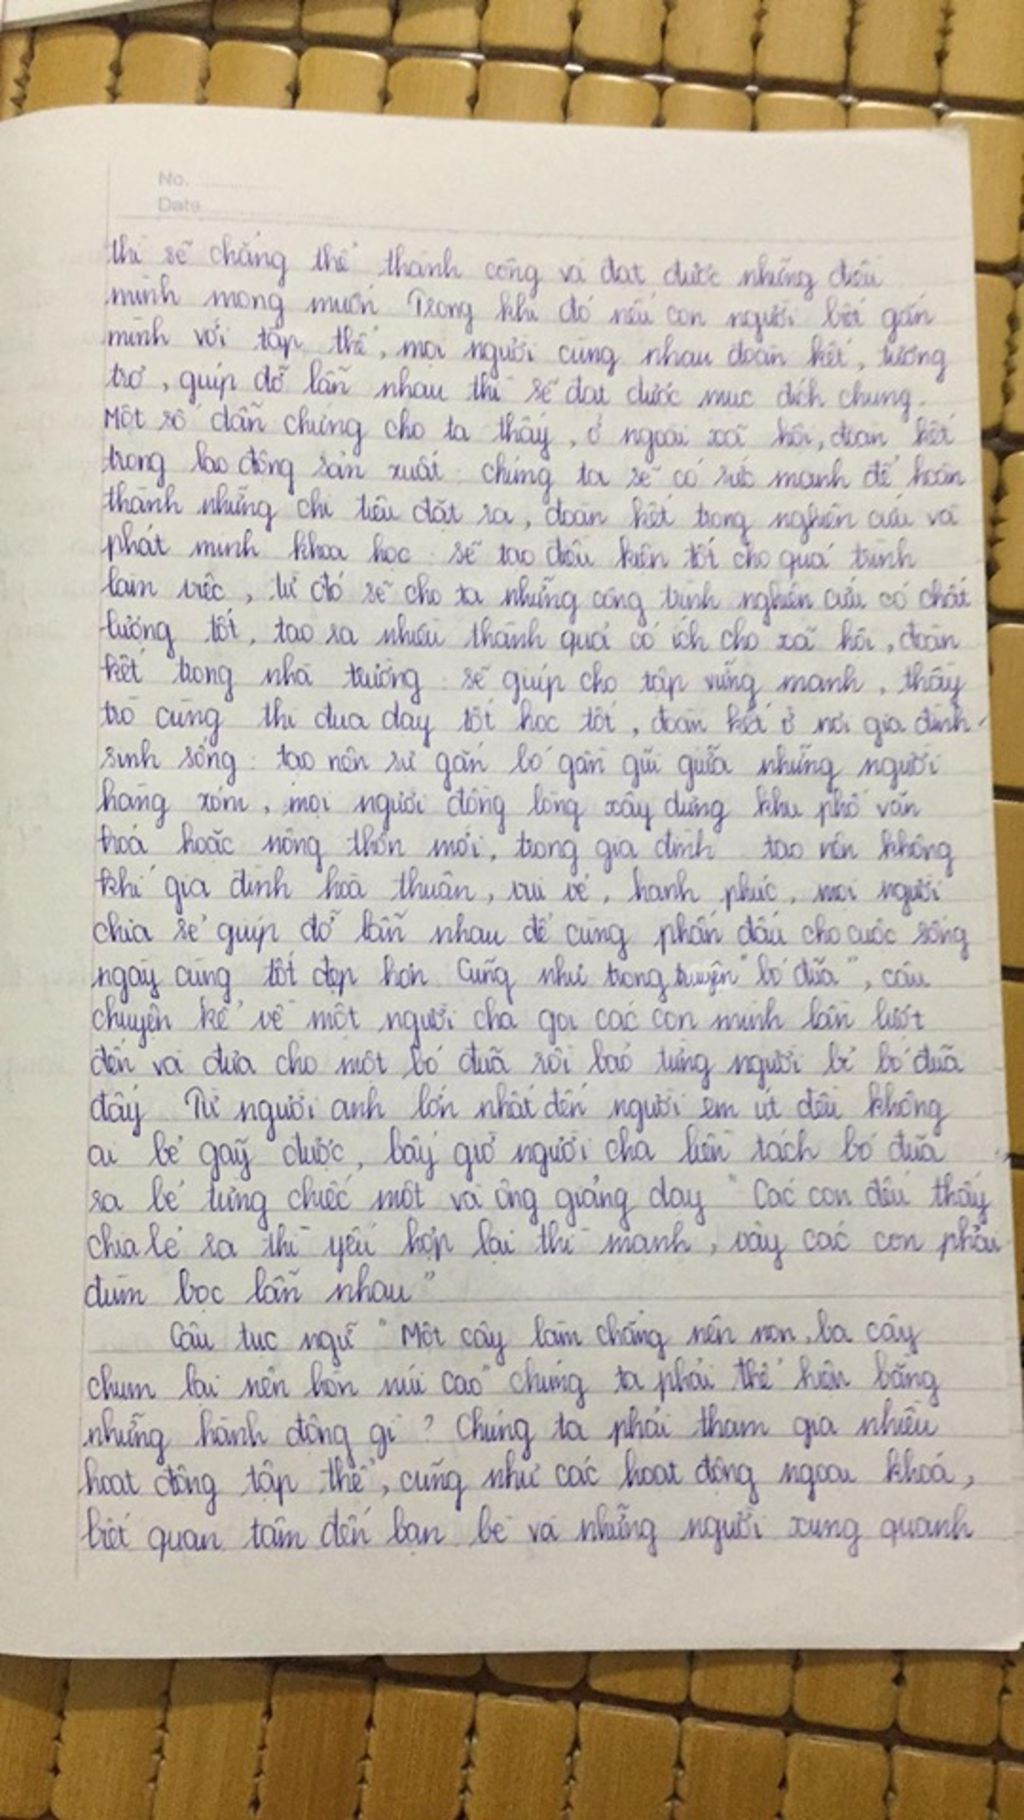 No.
Date
thì sẽ chẳng thể thành công và đạt được những điều
mình mong muốn. Trong khi đó nếu con người biết gắn
mình với tập thể, mọi người cùng nhau đoàn kết, tương
trợ, giúp đỡ lẫn nhau thì sẽ đạt được mục đích chung.
Một số dẫn chứng cho ta thấy, ở ngoài xã hội, đoàn kết
trong lao động sản xuất: chúng ta sẽ có sức mạnh để hoàn
thành những chỉ tiêu đặt ra, đoàn kết trong nghiên cứu và
phát minh khoa học: sẽ tạo điều kiện tốt cho quá trình
làm việc, từ đó sẽ cho ta những công trình nghiên cứu có chất
lượng tốt, tạo ra nhiều thành quả có ích cho xã hội, đoàn
kết trong nhà trường: sẽ giúp cho tập vững mạnh, thầy
trò cùng thi đua dạy tốt học tốt, đoàn kết ở nơi gia đình
sinh sống: tạo nên sự gắn bó gần gũi giữa những người
hàng xóm, mọi người đồng lòng xây dựng khu phố văn
hoá hoặc nông thôn mới, trong gia đình: tạo nên không
khí gia đình hoà thuận, vui vẻ, hạnh phúc, mọi người
chia sẻ giúp đỡ lẫn nhau để cùng phấn đấu cho cuộc sống
ngày càng tốt đẹp hơn. Cũng như trong truyện "bó đũa", câu
chuyện kể về một người cha gọi các con mình lần lượt
đến và đưa cho một bó đũa rồi bảo từng người bẻ bó đũa
đấy. Từ người anh lớn nhất đến người em út đều không
ai bẻ gãy được, bấy giờ người cha liền tách bó đũa
ra bẻ từng chiếc một và ông giảng dạy "Các con đều thấy
chia lẻ ra thì yếu hợp lại thì mạnh, vậy các con phải
đùm bọc lẫn nhau"
Câu tục ngữ "Một cây làm chẳng nên non, ba cây
chụm lại nên hòn núi cao" chúng ta phải thể hiện bằng
những hành động gì? Chúng ta phải tham gia nhiều
hoạt động tập thể, cũng như các hoạt động ngoại khoá,
biết quan tâm đến bạn bè và những người xung quanh